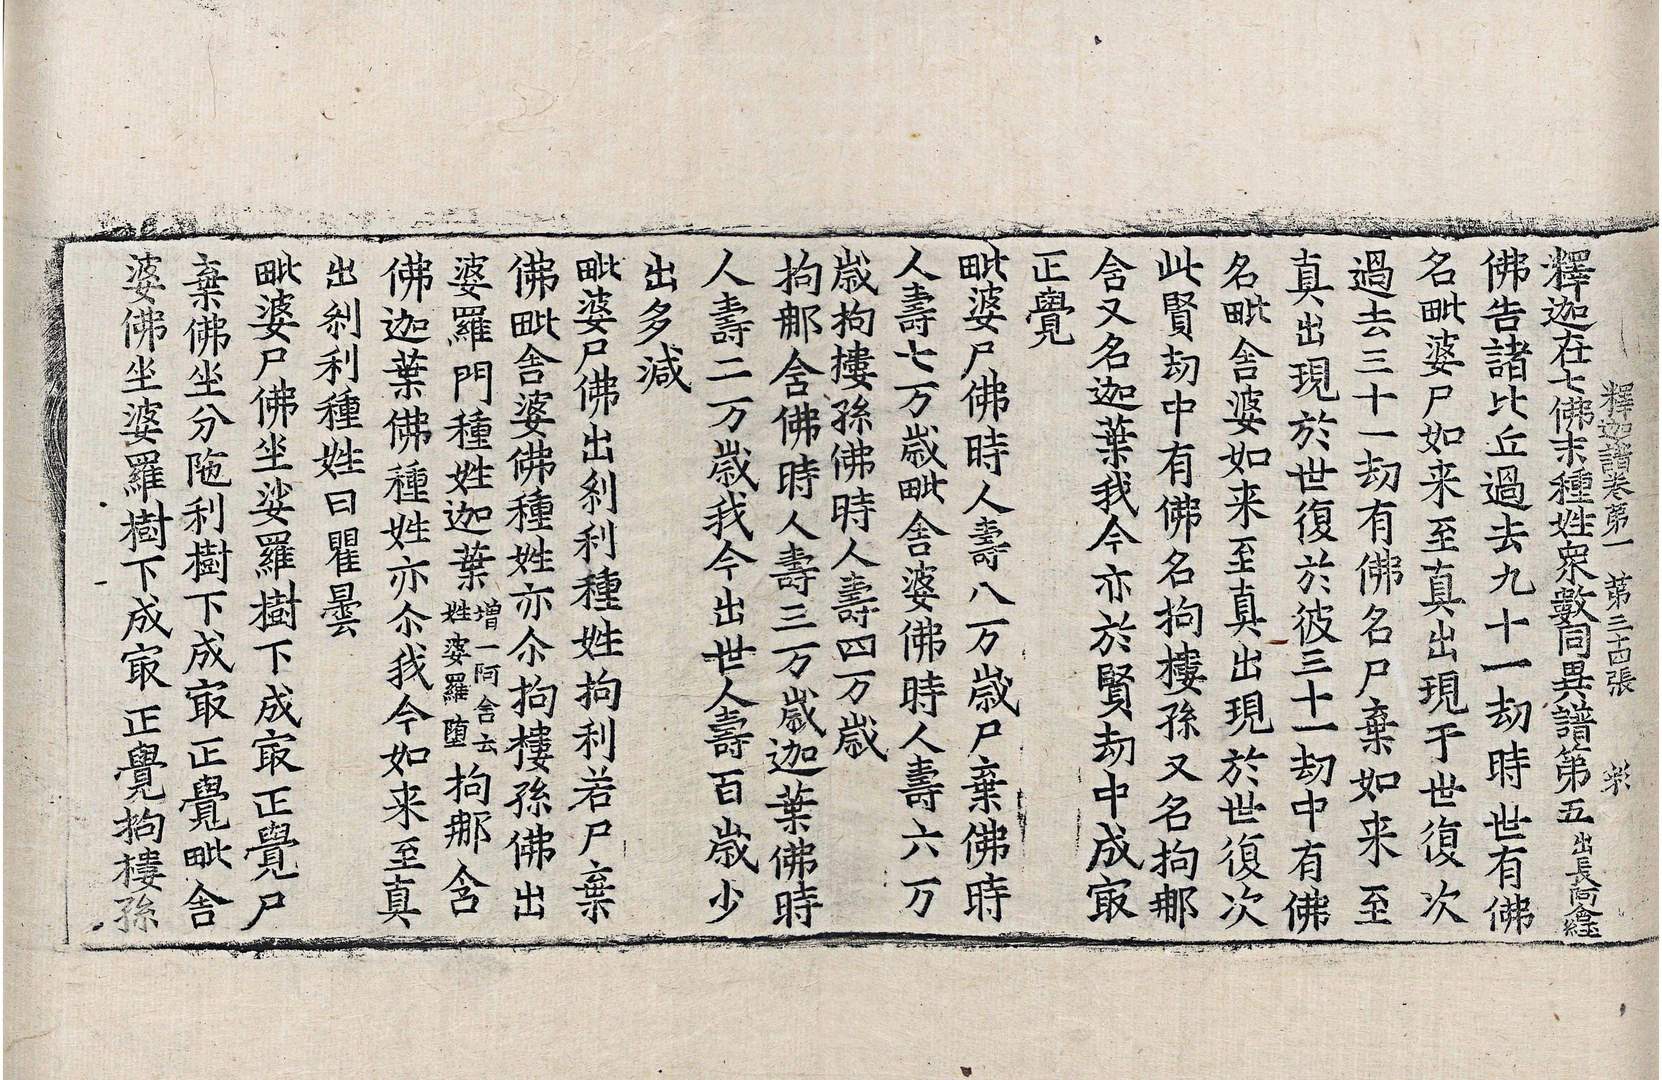 釋迦譜卷第一 第三十四張 㪍
釋迦在七佛末種姓衆數同異譜第五 出長阿含經
佛告諸比丘過去九十一劫時世有佛
名毗婆尸如来至真出現于世復次
過去三十一劫有佛名尸棄如来至
真出現於世復於彼三十一劫中有佛
名毗舍婆如来至真出現於世復次
此賢劫中有佛名拘樓孫又名拘那
含又名迦葉我今亦於賢劫中成㝡
正覺
毗婆尸佛時人壽八万歲尸棄佛時
人壽七万歲毗舍婆佛時人壽六万
歲拘樓孫佛時人壽四万歲
拘那含佛時人壽三万歲迦葉佛時
人壽二万歲我今出世人壽百歲少
出多減
毗婆尸佛出刹利種姓拘利若尸棄
佛毗舍婆佛種姓亦尒拘樓孫佛出
婆羅門種姓迦葉 增一阿含云姓婆羅墮 拘那含
佛迦葉佛種姓亦尒我今如来至真
出刹利種姓曰瞿曇
毗婆尸佛坐娑羅樹下成㝡正覺尸
棄佛坐分陁利樹下成㝡正覺毗舍
婆佛坐婆羅樹下成㝡正覺拘樓孫